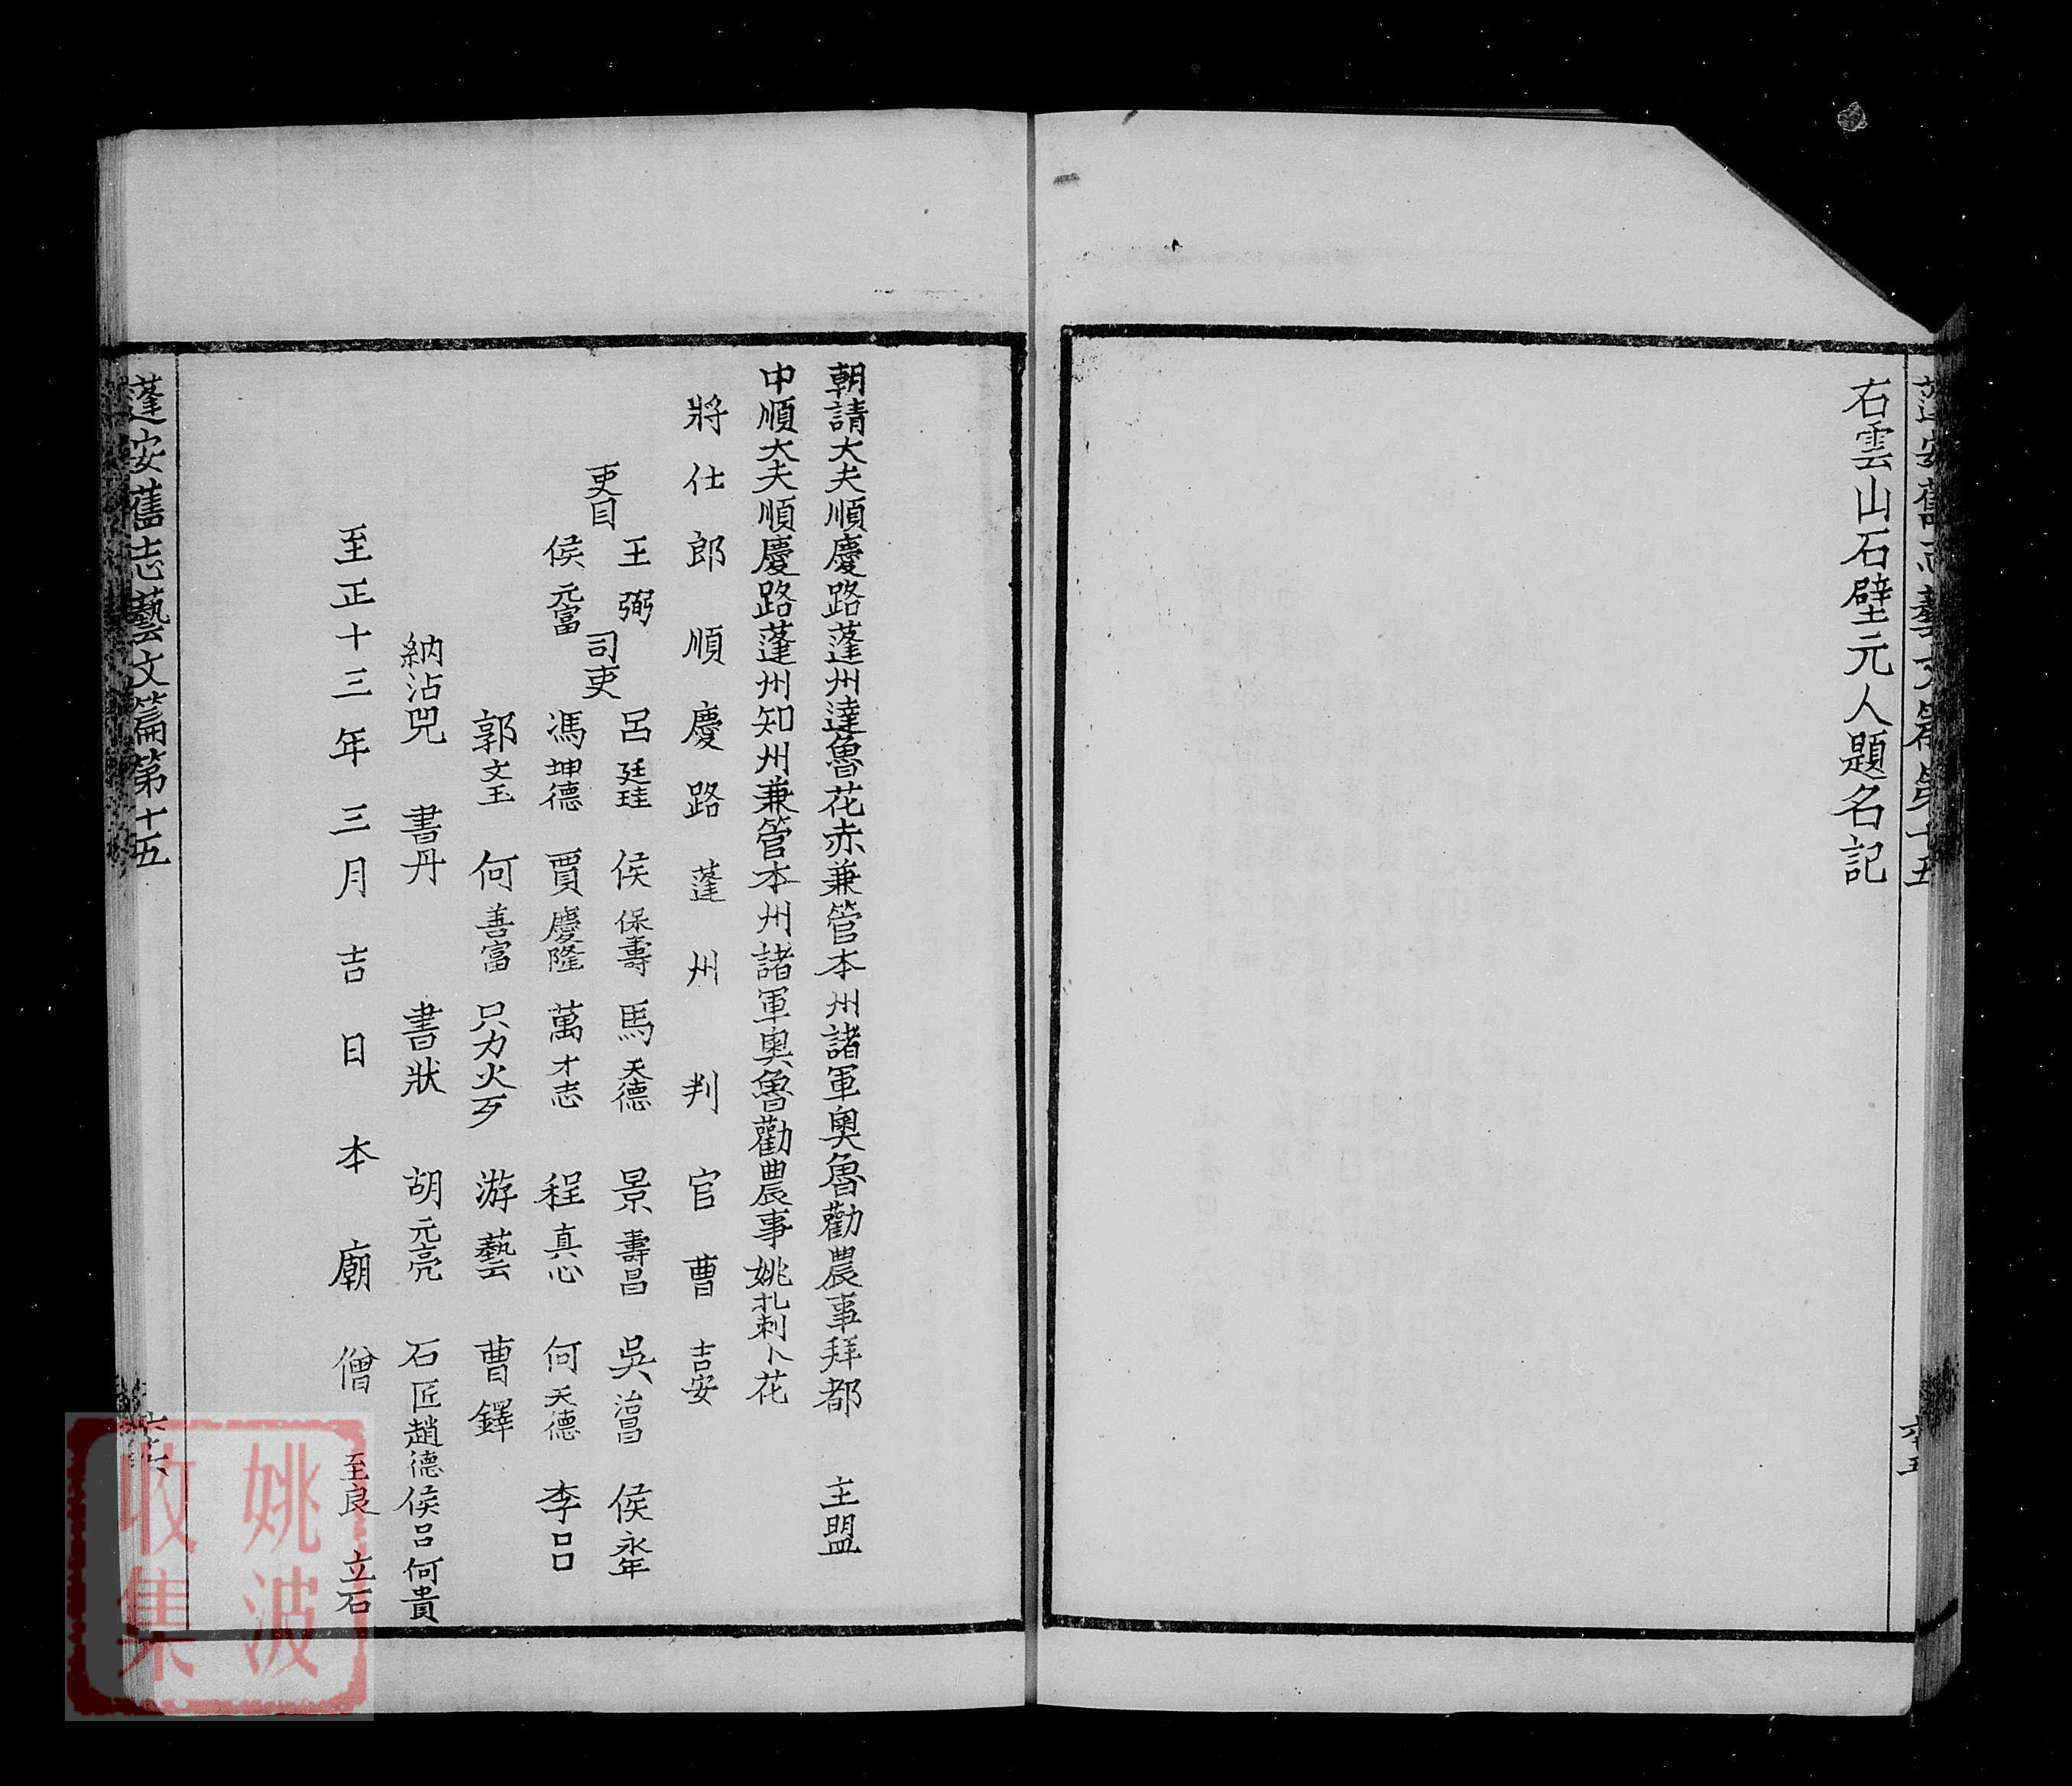 蓬安舊志藝文篇第十五
六十五
右雲山石壁元人題名記
朝請大夫順慶路蓬州達魯花赤兼管本州諸軍奧魯勸農事拜都　主盟
中順大夫順慶路蓬州知州兼管本州諸軍奧魯勸農事姚扎剌卜花
將仕郎順慶路蓬州判官曹吉安
吏目　王弼　侯元富
司吏　呂廷珪　侯保壽　馬天德　景壽昌　吳治昌　侯永年
馮坤德　賈慶隆　萬才志　程真心　何天德　李吕
郭文玉　何善富　只力火歹　游藝　曹鐸
納沾兕　書丹　書狀　胡元亮　石匠趙德侯吕何貴
至正十三年三月吉日本廟僧至良　立石
蓬安舊志藝文篇第十五
姚波
收集